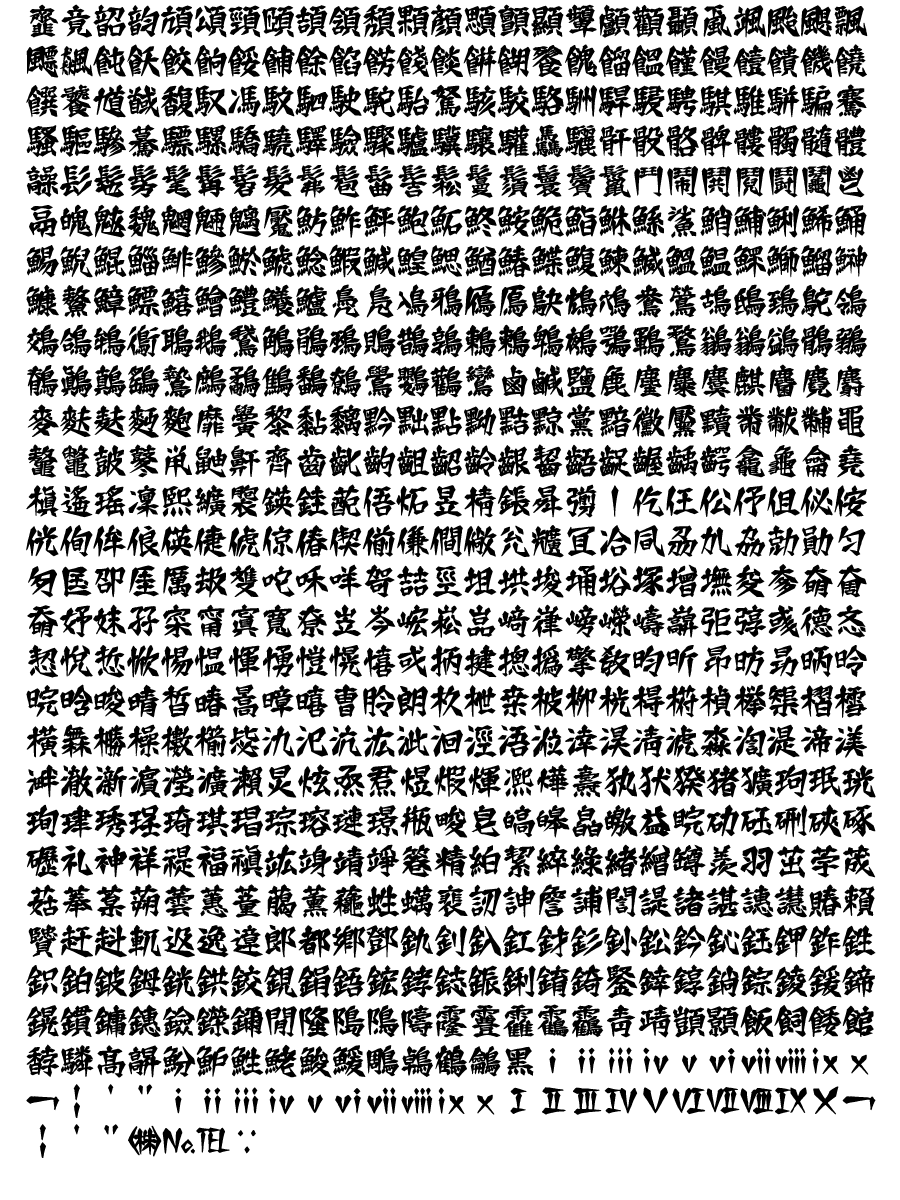 韲竟韶韵頏頌頸頤頡頷頽顆顏顋顫顯顰顱顴顳颪颯颱颶飄
飃飆飩飫餃餉餒餔餘餡餝餞餤餠餬餮餽餾饂饉饅饐饋饑饒
饌饕馗馘馥馭馮馼駟駛駝駘駑駭駮駱駲駻駸騁騏騅駢騙騫
騷驅驂驀驃騾驕驍驛驗驟驢驥驤驩驫驪骭骰骼髀髏髑髓體
髞髟髢髣髦髯髫髮髴髱髷髻鬆鬘鬚鬟鬢鬣鬥鬧鬨鬩鬪鬮鬯
鬲魄魃魏魍魎魑魘魴鮓鮃鮑鮖鮗鮟鮠鮨鮴鯀鯊鮹鯆鯏鯑鯒
鯣鯢鯤鯔鯡鰺鯲鯱鯰鰕鰔鰉鰓鰌鰆鰈鰒鰊鰄鰮鰛鰥鰤鰡鰰
鱇鰲鱆鰾鱚鱠鱧鱶鱸鳧鳬鳰鴉鴈鳫鴃鴆鴪鴦鶯鴣鴟鵄鴕鴒
鵁鴿鴾鵆鵈鵝鵞鵤鵑鵐鵙鵲鶉鶇鶫鵯鵺鶚鶤鶩鶲鷄鷁鶻鶸
鶺鷆鷏鷂鷙鷓鷸鷦鷭鷯鷽鸚鸛鸞鹵鹹鹽麁麈麋麌麒麕麑麝
麥麩麸麪麭靡黌黎黏黐黔黜點黝黠黥黨黯黴黶黷黹黻黼黽
鼇鼈皷鼕鼡鼬鼾齊齒齔齣齟齠齡齦齧齬齪齷齲齶龕龜龠堯
槇遙瑤凜熙纊褜鍈銈蓜俉炻昱棈鋹曻彅丨仡仼伀伃伹佖侒
侊侚侔俍偀倢俿倞偆偰偂傔僴僘兊兤冝冾凬刕劜劦勀勛匀
匇匤卲厓厲叝﨎咜咊咩哿喆坙坥垬埈埇﨏塚增墲夋奓奛奝
奣妤妺孖寀甯寘寬尞岦岺峵崧嵓﨑嵂嵭嶸嶹巐弡弴彧德忞
恝悅悊惞惕愠惲愑愷愰憘戓抦揵摠撝擎敎昀昕昻昉昮昞昤
晥晗晙晴晳暙暠暲暿曺朎朗杦枻桒柀栁桄棏﨓楨﨔榘槢樰
橫橆橳橾櫢櫤毖氿汜沆汯泚洄涇浯涖涬淏淸淲淼渹湜渧渼
溿澈澵濵瀅瀇瀨炅炫焏焄煜煆煇凞燁燾犱犾猤猪獷玽珉珖
珣珒琇珵琦琪琩琮瑢璉璟甁畯皂皜皞皛皦益睆劯砡硎硤硺
礰礼神祥禔福禛竑竧靖竫箞精絈絜綷綠緖繒罇羡羽茁荢荿
菇菶葈蒴蕓蕙蕫﨟薰蘒﨡蠇裵訒訷詹誧誾諟諸諶譓譿賰賴
贒赶赳軏﨤逸遧郞都鄕鄧釚釗釞釭釮釤釥鈆鈐鈊鈺鉀鈼鉎
鉙鉑鈹鉧銧鉷鉸鋧鋗鋙鋐﨧鋕鋠鋓錥錡鋻﨨錞鋿錝錂鍰鍗
鎤鏆鏞鏸鐱鑅鑈閒隆﨩隝隯霳霻靃靍靏靑靕顗顥飯飼餧館
馞驎髙髜魵魲鮏鮱鮻鰀鵰鵫鶴鸙黑ⅰⅱⅲⅳⅴⅵⅶⅷⅸⅹ
￢￤＇＂ⅰⅱⅲⅳⅴⅵⅶⅷⅸⅹⅠⅡⅢⅣⅤⅥⅦⅧⅨⅩ￢
￤＇＂㈱№℡∵